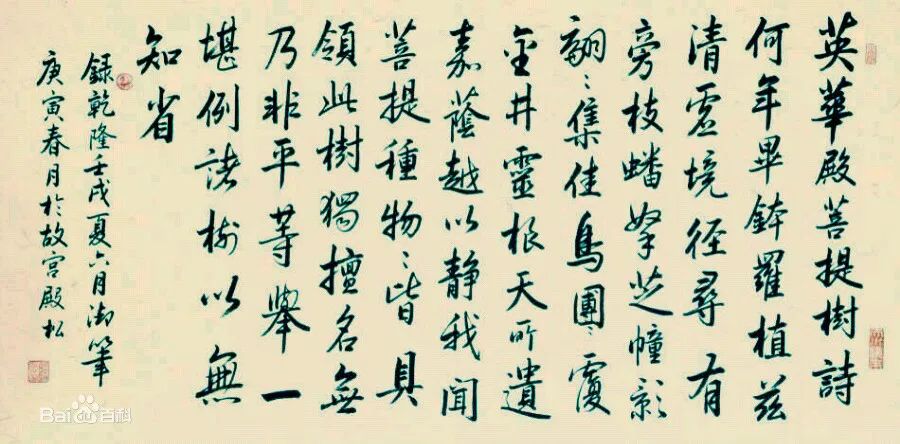 英華殿菩提樹詩
何年畢鉢羅植茲
清虛境径尋有
旁枝蟠拏芝幢影
翩〻集佳鳥團〻覆
金井靈根天所遺
嘉蔭越以静我聞
菩提種物〻皆具
領此樹獨擅名無
乃非平等舉一
堪例诸樹以無
知省
録乾隆壬戌夏六月御筆
庚寅春月於故宫殿松
Baidu百科